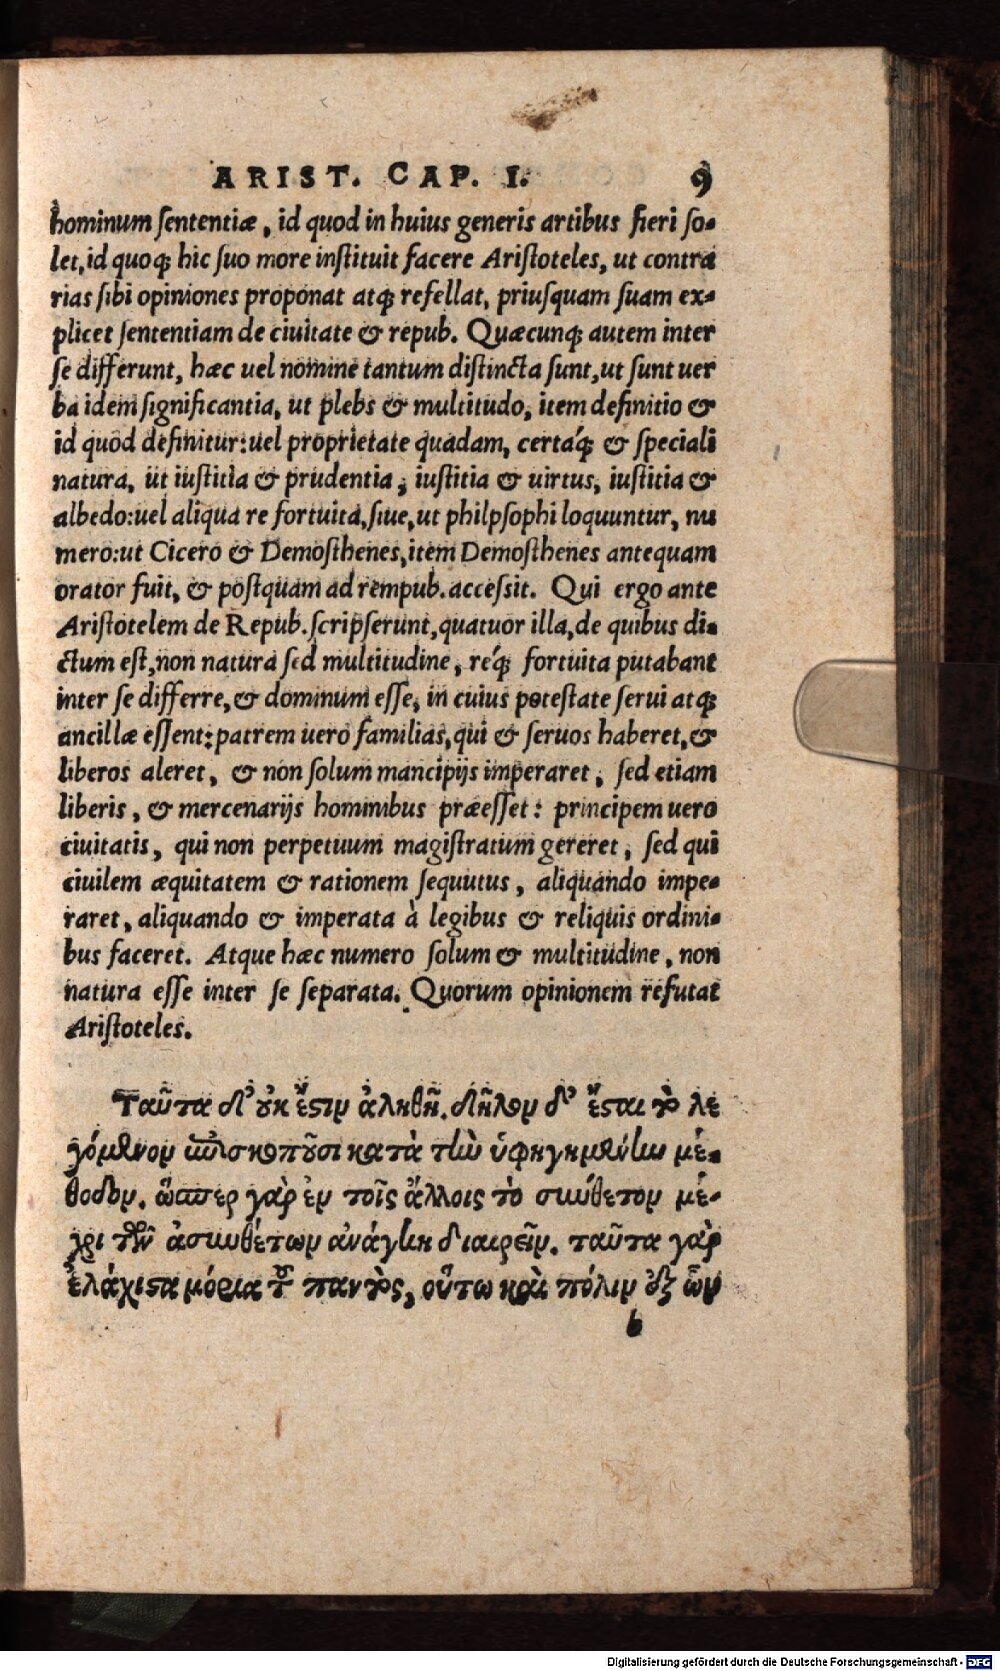 ARIST. CAP. I. 9
hominum sententiæ, id quod in huius generis artibus fieri so-
let, id quoq; hic suo more instituit facere Aristoteles, ut contra
rias sibi opiniones proponat atq; refellat, priusquam suam ex-
plicet sententiam de ciuitate & repub. Quæcunq; autem inter
se differunt, hæc uel nomine tantum distincta sunt, ut sunt uer
ba idem significantia, ut plebs & multitudo, item definitio &
id quod definitur: uel proprietate quadam, certáq; & speciali
natura, ut iustitia & prudentia, iustitia & uirtus, iustitia &
albedo: uel aliqua re fortuita, siue, ut philpsophi loquuntur, nu
mero: ut Cicero & Demosthenes, item Demosthenes antequam
orator fuit, & postquam ad rempub. accessit. Qui ergo ante
Aristotelem de Repub. scripserunt, quatuor illa, de quibus di-
ctum est, non natura sed multitudine, réq; fortuita putabant
inter se differre, & dominum esse, in cuius potestate serui atq;
ancillæ essent: patrem uero familias, qui & seruos haberet, &
liberos aleret, & non solum mancipijs imperaret, sed etiam
liberis, & mercenarijs hominibus præesset: principem uero
ciuitatis, qui non perpetuum magistratum gereret, sed qui
ciuilem æquitatem & rationem sequutus, aliquando impe-
raret, aliquando & imperata à legibus & reliquis ordini-
bus faceret. Atque hæc numero solum & multitudine, non
natura esse inter se separata. Quorum opinionem refutat
Aristoteles.
Ταῦτα δ' οὐκ ἔστιν ἀληθῆ. δῆλον δ' ἔσται τὸ λε
γόμενον ἐπισκοποῦσι κατὰ τὴν ὑφηγημένην μέ-
θοδον. ὥσπερ γὰρ ἐν τοῖς ἄλλοις τὸ σύνθετον μέ-
χρι τῶν ἀσυνθέτων ἀνάγκη διαιρεῖν. ταῦτα γὰρ
ἐλάχιστα μόρια τοῦ παντὸς, οὕτω καὶ πόλιν ἐξ ὧν
b
Digitalisierung gefördert durch die Deutsche Forschungsgemeinschaft - DFG